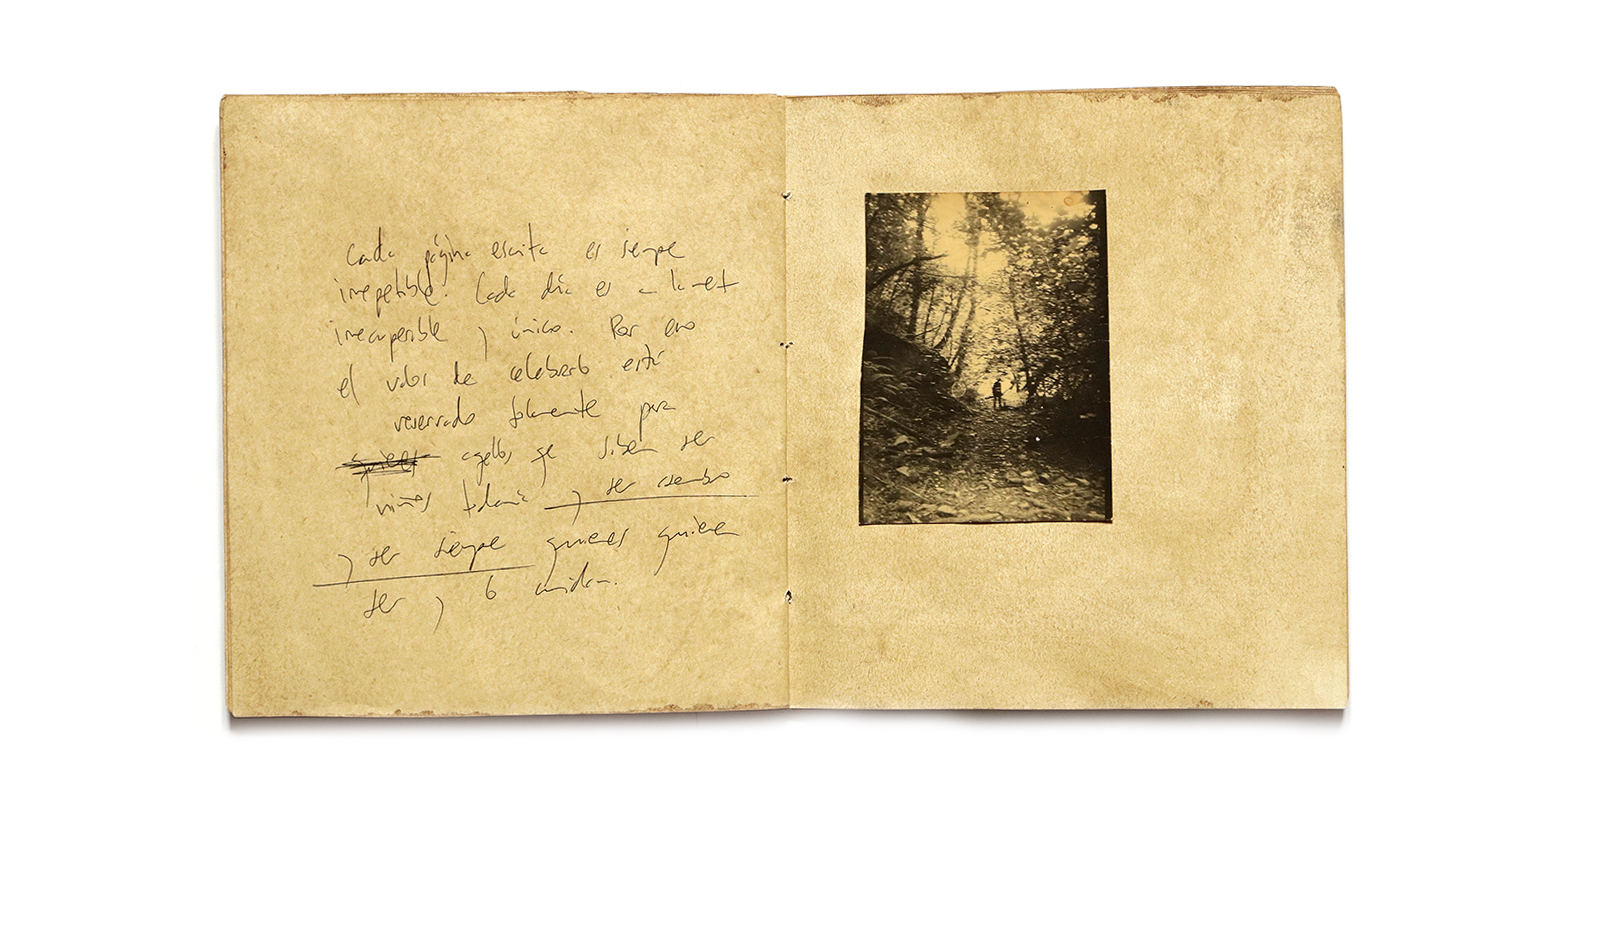 Cada página escrita es siempre
irrepetible. Cada día es
irrecuperable y único. Por eso
el valor de celebrarlo está
reservado solamente para
quienes aquellos que saben ser
niños todavía y ser
y ser siempre quienes quieren
ser y lo cuidan.